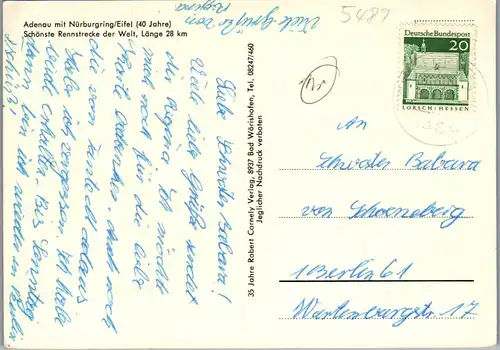 Adenau mit Nürburgring/Eifel (40 Jahre)
Schönste Rennstrecke der Welt, Länge 28 km
Viele Grüße von
Regina
5489
Deutsche Bundespost
20
LORSCH/HESSEN
35 Jahre Robert Cornely Verlag, 8937 Bad Wörishofen, Tel. 08247/460
Jeglicher Nachdruck verboten
Liebe Schwester Barbara!
Viele liebe Grüße sendet
die Regina. Ich möchte
mich noch für die liebe
Karte bedanken. Auch noch
die von
habe ich vergessen. Ich habe
beide erhalten. Bis Sonntag
dann bin ich wieder in Berlin
An
Schwester Babara
von Schoeneberg
1 Berlin 61
Wartenburgstr. 17